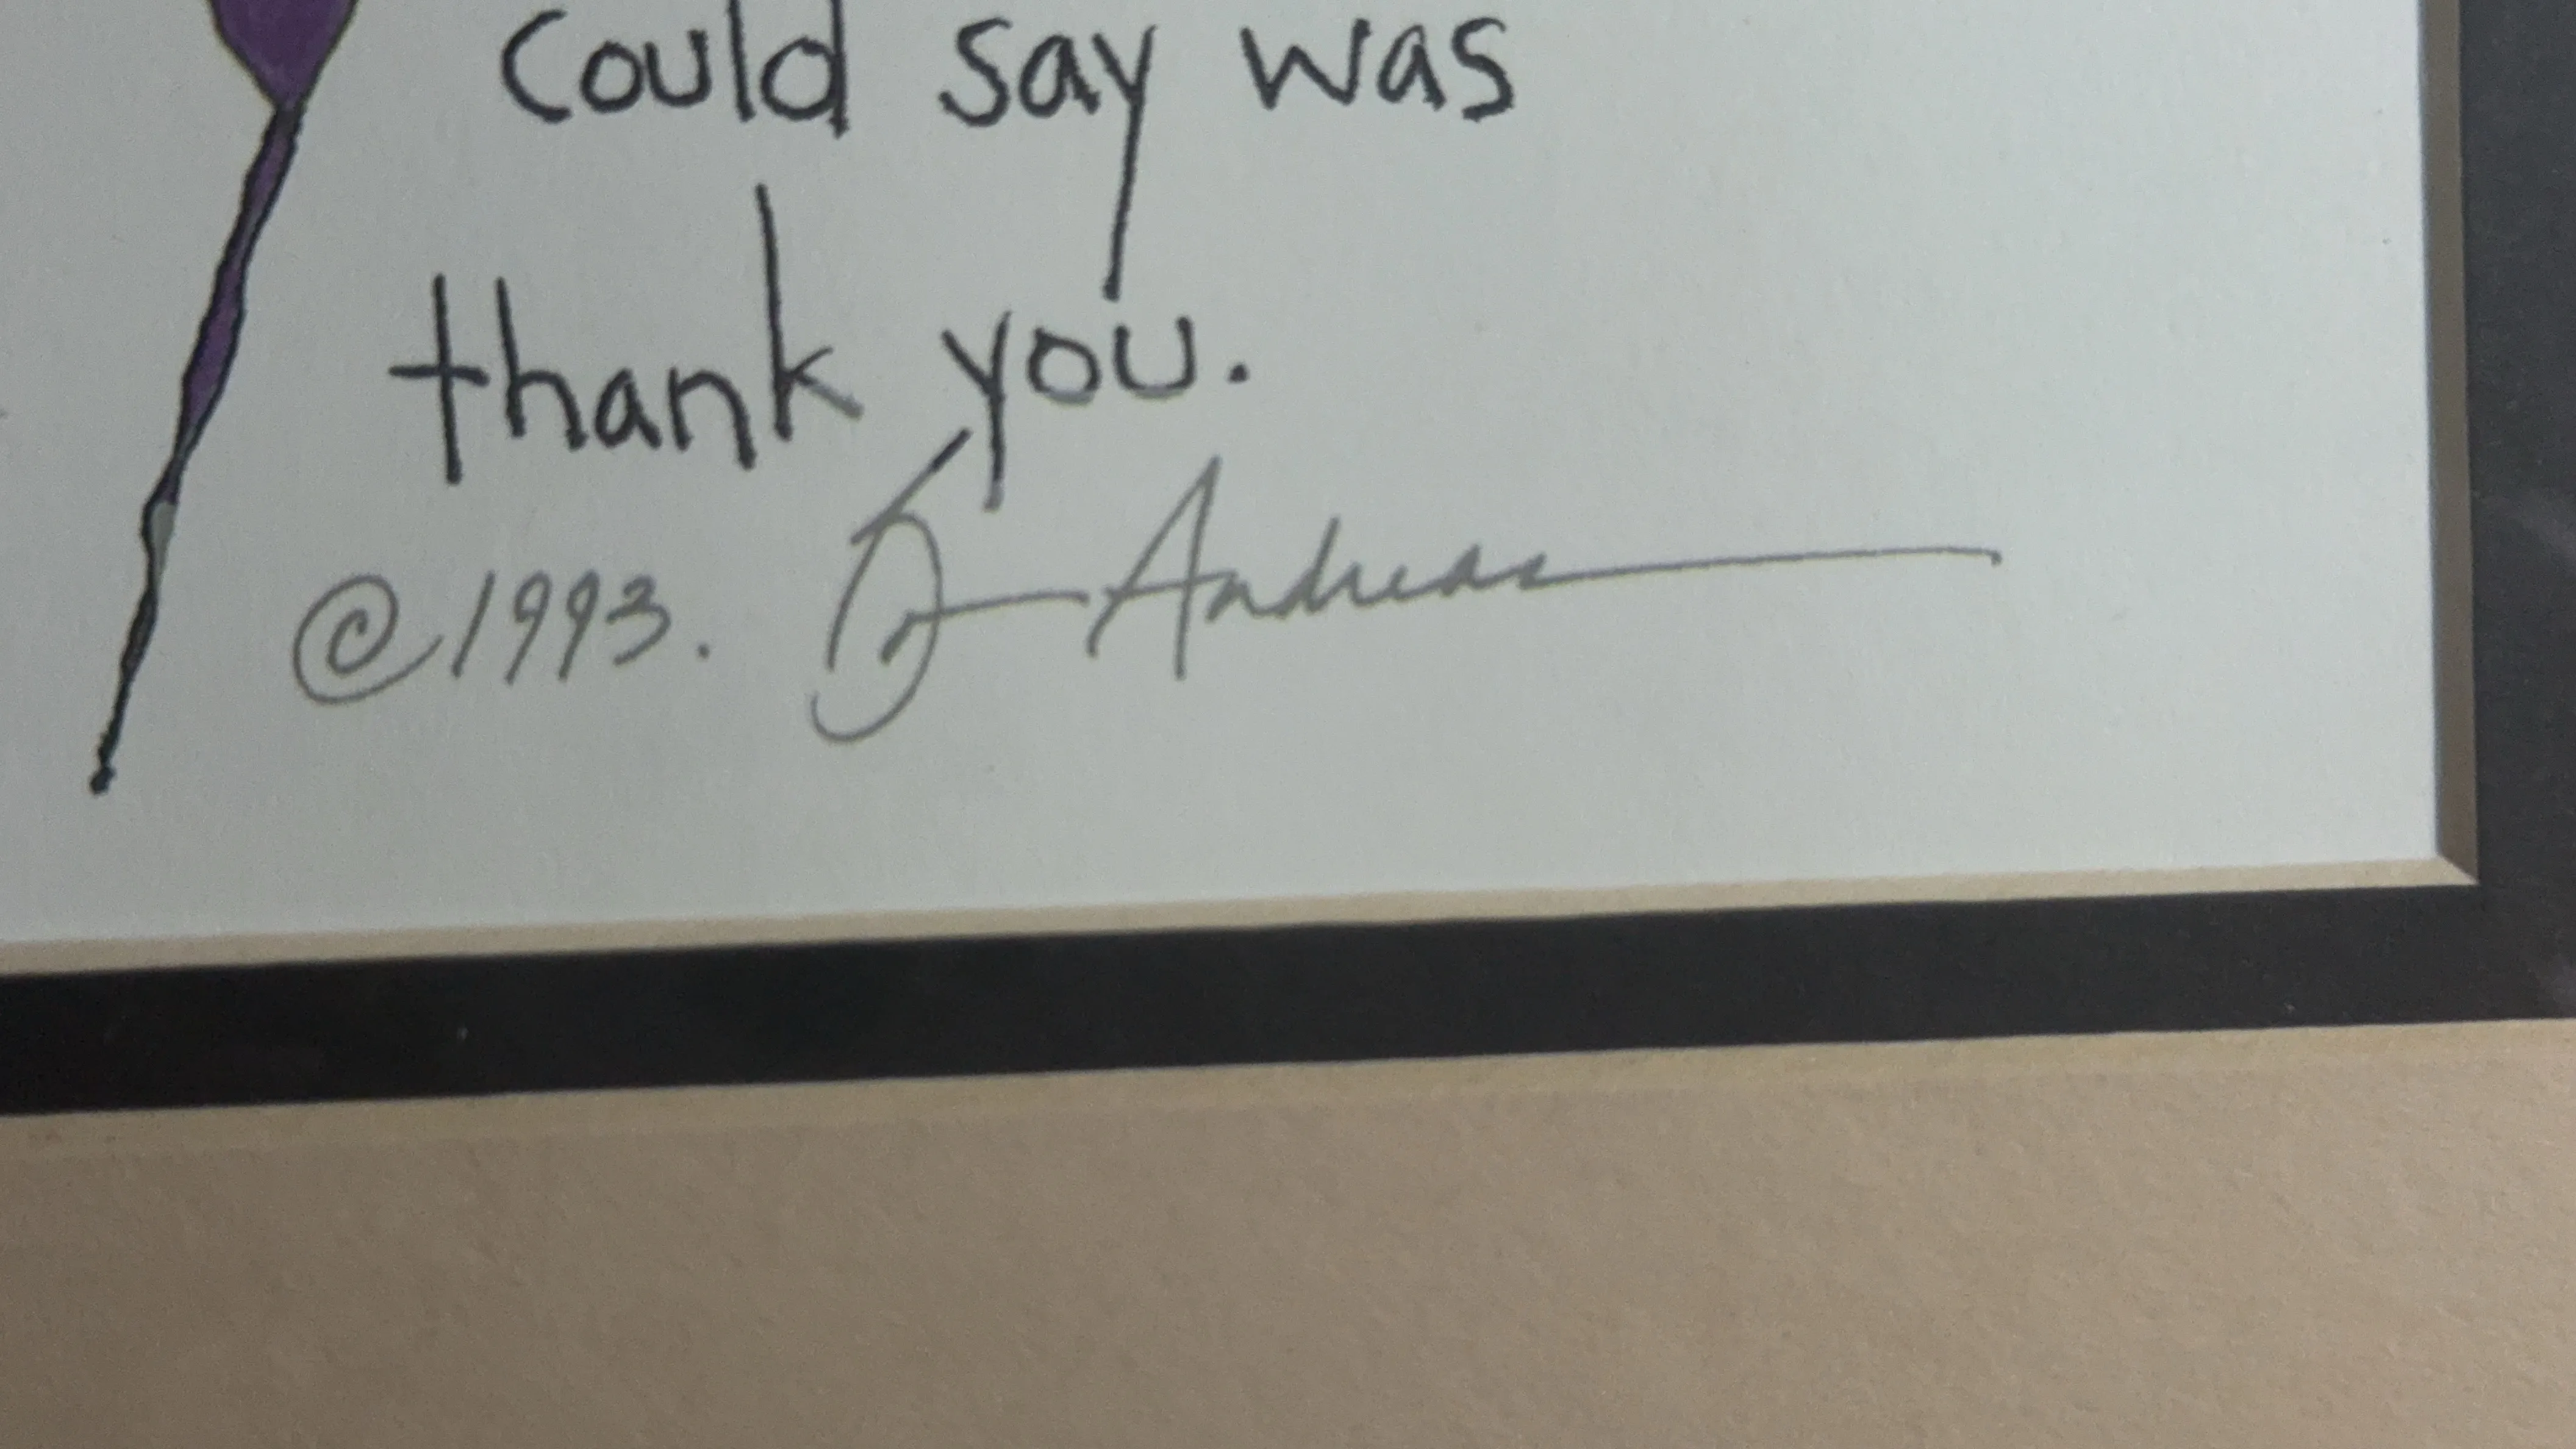 could say was
thank you.
©1993. Andreas